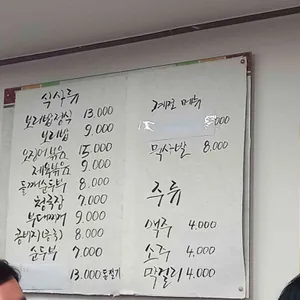 식사류
보리밥정식 13,000
보리밥 9,000
오징어볶음 15,000
제육볶음 9,000
들깨순두부 8,000
청국장 7,000
부대찌개 9,000
콩비지(동절) 8,000
순두부 7,000
13,000
계절메뉴
000
묵사발 8,000
주류
맥주 4,000
소주 4,000
막걸리 4,000